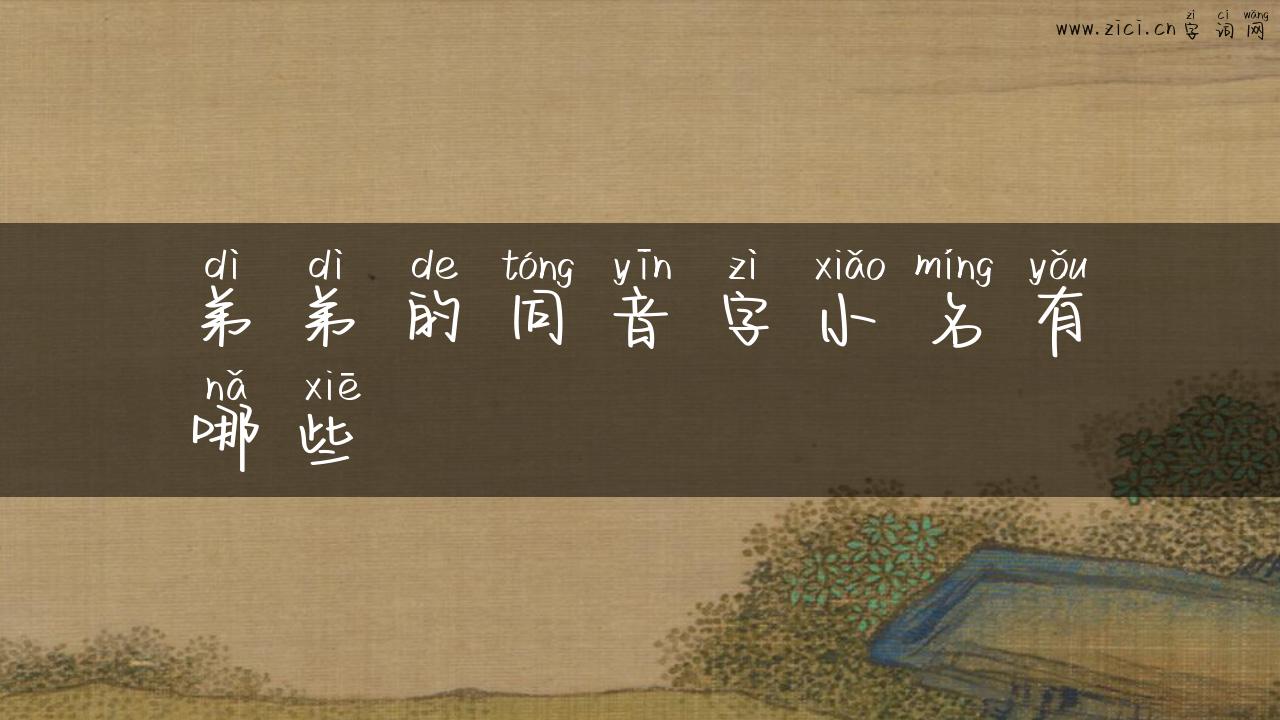 zì cí wǎng
www.zici.cn 字 词 网
dì dì de tóng yīn zì xiǎo míng yǒu
弟 弟 的 同 音 字 小 名 有
nǎ xiē
哪 些